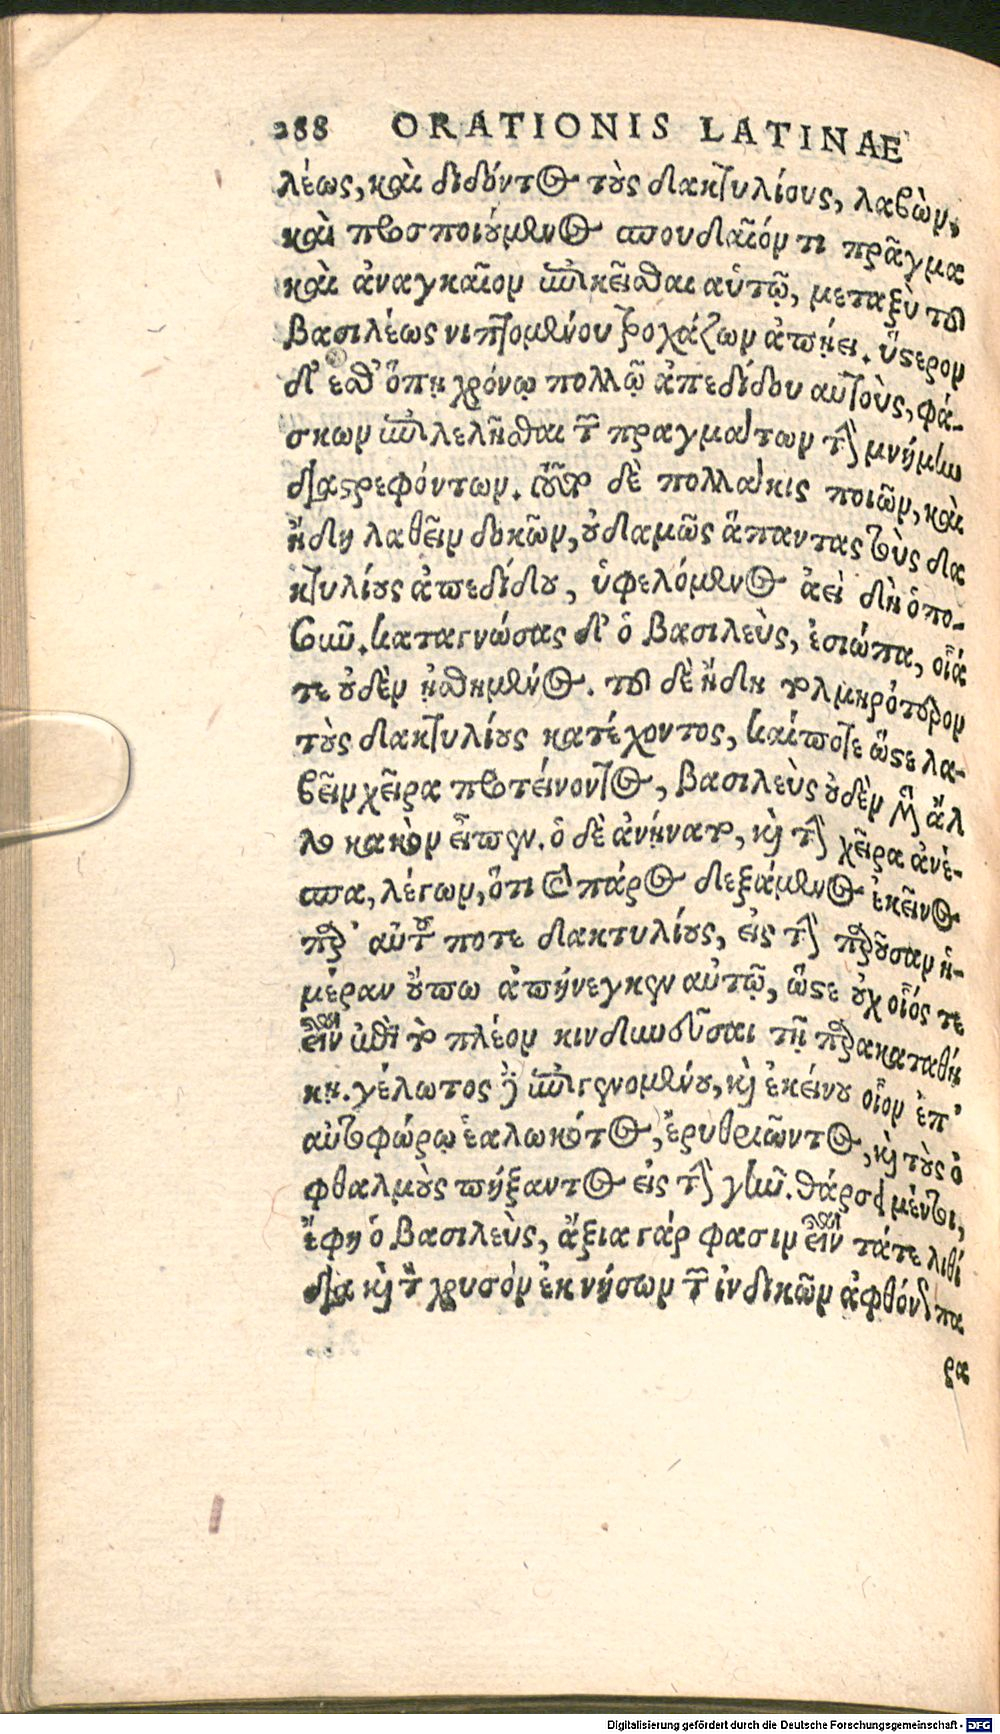 288 ORATIONIS LATINAE
λέως, καὶ διδόντος τοὺς δακτυλίους, λαβὼν,
καὶ προσποιούμενος σπουδαῖόν τι πρᾶγμα
καὶ ἀναγκαῖον ἐπικεῖσθαι αὐτῷ, μεταξὺ τοῦ
βασιλέως νιπτομένου τροχάζων ἀπῄει. ὕστερον
δ' ἔσθ' ὅπῃ χρόνῳ πολλῷ ἀπεδίδου αὐτοὺς, φά-
σκων ἐπιλελῆσθαι τῶν πραγμάτων τὴν μνήμην
διαστρεφόντων. τοῦτο δὲ πολλάκις ποιῶν, καὶ
ἤδη λαθεῖν δοκῶν, οὐδαμῶς ἅπαντας τοὺς δα
κτυλίους ἀπεδίδου, ὑφελόμενος ἀεὶ δὴ ὁπο-
σηοῦν. καταγνώσας δ' ὁ βασιλεὺς, ἐσιώπα, οἷά
τε οὐδὲν ᾐσθημένος. τοῦ δὲ ἤδη
τοὺς δακτυλίους κατέχοντος, καίποτε ὥστε λα-
βεῖν χεῖρα προτείνοντος, βασιλεὺς οὐδὲν μὲν ἄλ
λο κακὸν εἶπεν. ὁ δὲ ἀνήνατο, καὶ τὴν χεῖρα ἀνέ-
σπα, λέγων, ὅτι ὁ πάρος δεξάμενος ἐκεῖνος
παρ' αὐτοῦ ποτε δακτυλίους, εἰς τὴν παροῦσαν ἡ-
μέραν οὔπω ἀπήνεγκεν αὐτῷ, ὥστε οὐχ οἷός τε
εἶναι ἐπὶ τὸ πλέον κινδυνεῦσαι τῇ παρακαταθή
κῃ. γέλωτος δὲ ἐπιγενομένου, καὶ ἐκείνου οἷον ἐπ'
αὐτοφώρῳ ἑαλωκότος, ἐρυθριῶντος, καὶ τοὺς ὀ
φθαλμοὺς πήξαντος εἰς τὴν γῆν. θάρσει μέντοι,
ἔφη ὁ βασιλεὺς, ἄξια γάρ φασιν εἶναι τάτε λιθί
δια καὶ τὸν χρυσὸν ἐκ νήσων τῶν ἰνδικῶν ἀφθόνως πα
ρα
Digitalisierung gefördert durch die Deutsche Forschungsgemeinschaft - DFG